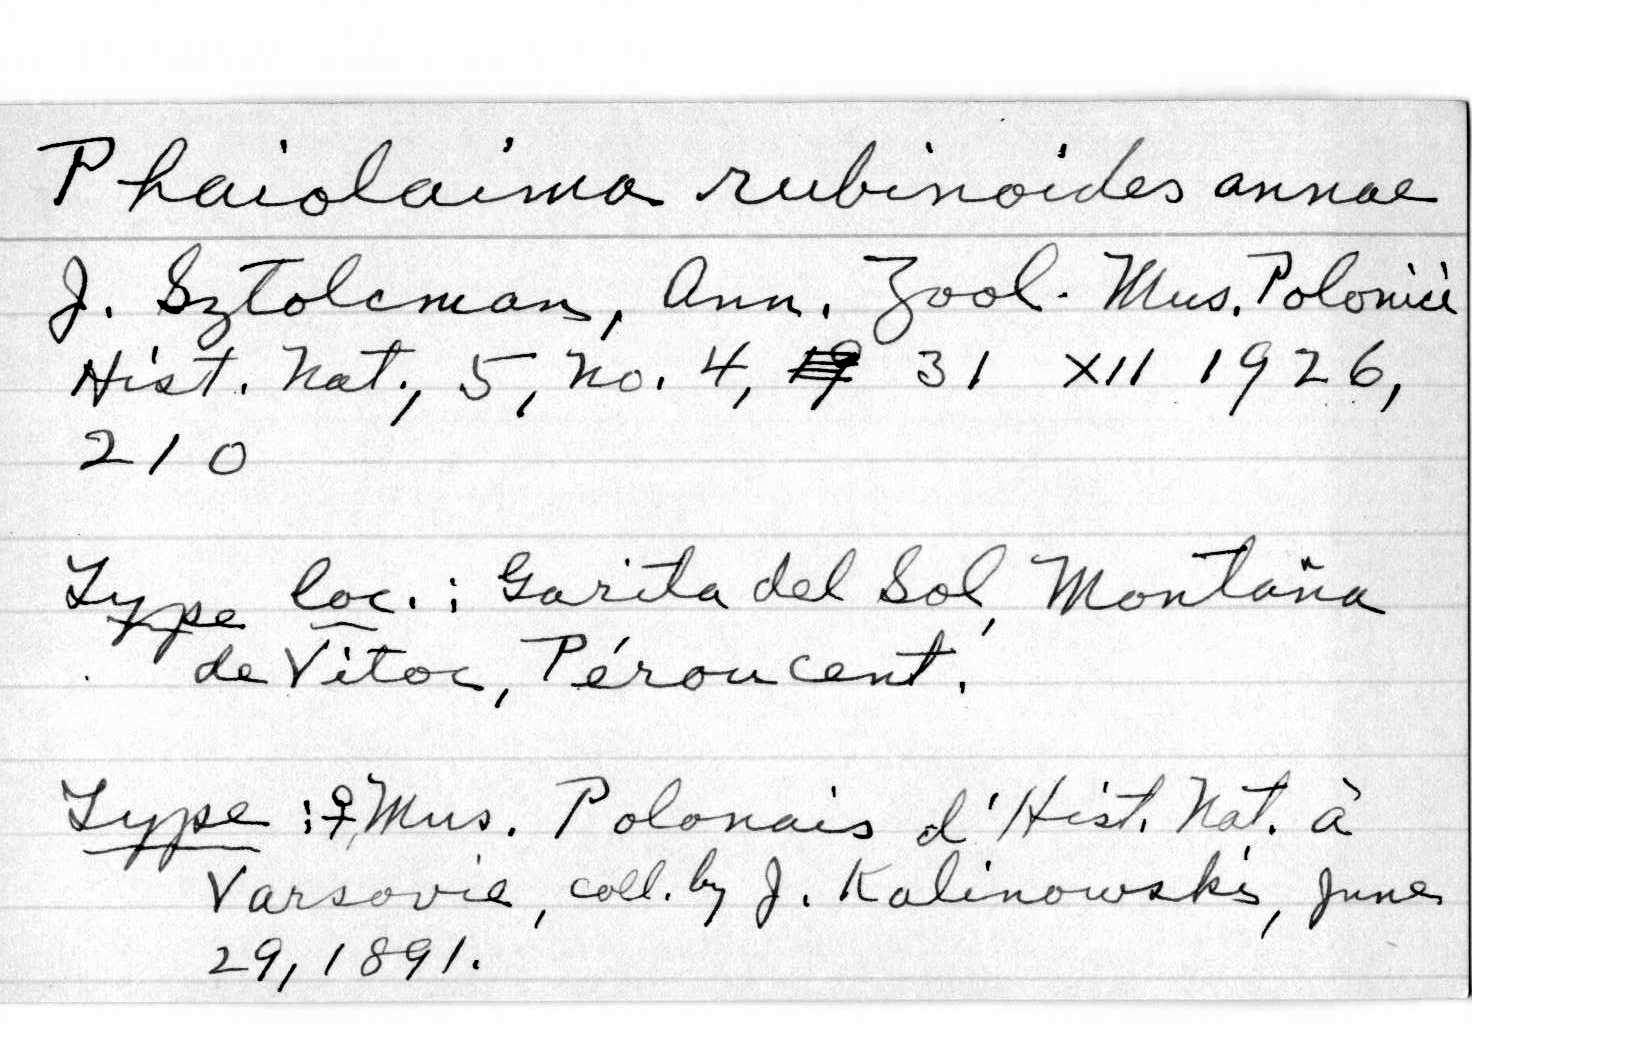 Phaiolaima rubinoides annae
J. Sztolcman, Ann. Zool. Mus. Polonici
Hist. Nat., 5, No. 4, 31 XII 1926,
210
Type loc.: Garita del Sol, Montaña
de Vitoc, Pérou cent.
Type: ♀, Mus. Polonais d'Hist. Nat. à
Varsovie, coll. by J. Kalinowski, June
29, 1891.